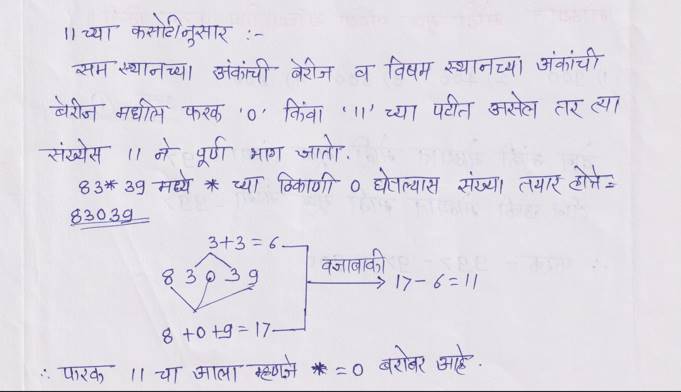 11 च्या कसोटीनुसार :-
सम स्थानच्या अंकांची बेरीज व विषम स्थानच्या अंकांची
बेरीज मधील फरक '0' किंवा '11' च्या पटीत असेल तर त्या
संख्येस 11 ने पूर्ण भाग जातो.
83*39 मध्ये * च्या ठिकाणी 0 घेतल्यास संख्या तयार होते =
83039
3+3=6
8 3 0 3 9
वजाबाकी
17-6=11
8+0+9=17
∴ फरक 11 चा आला म्हणजे *=0 बरोबर आहे.